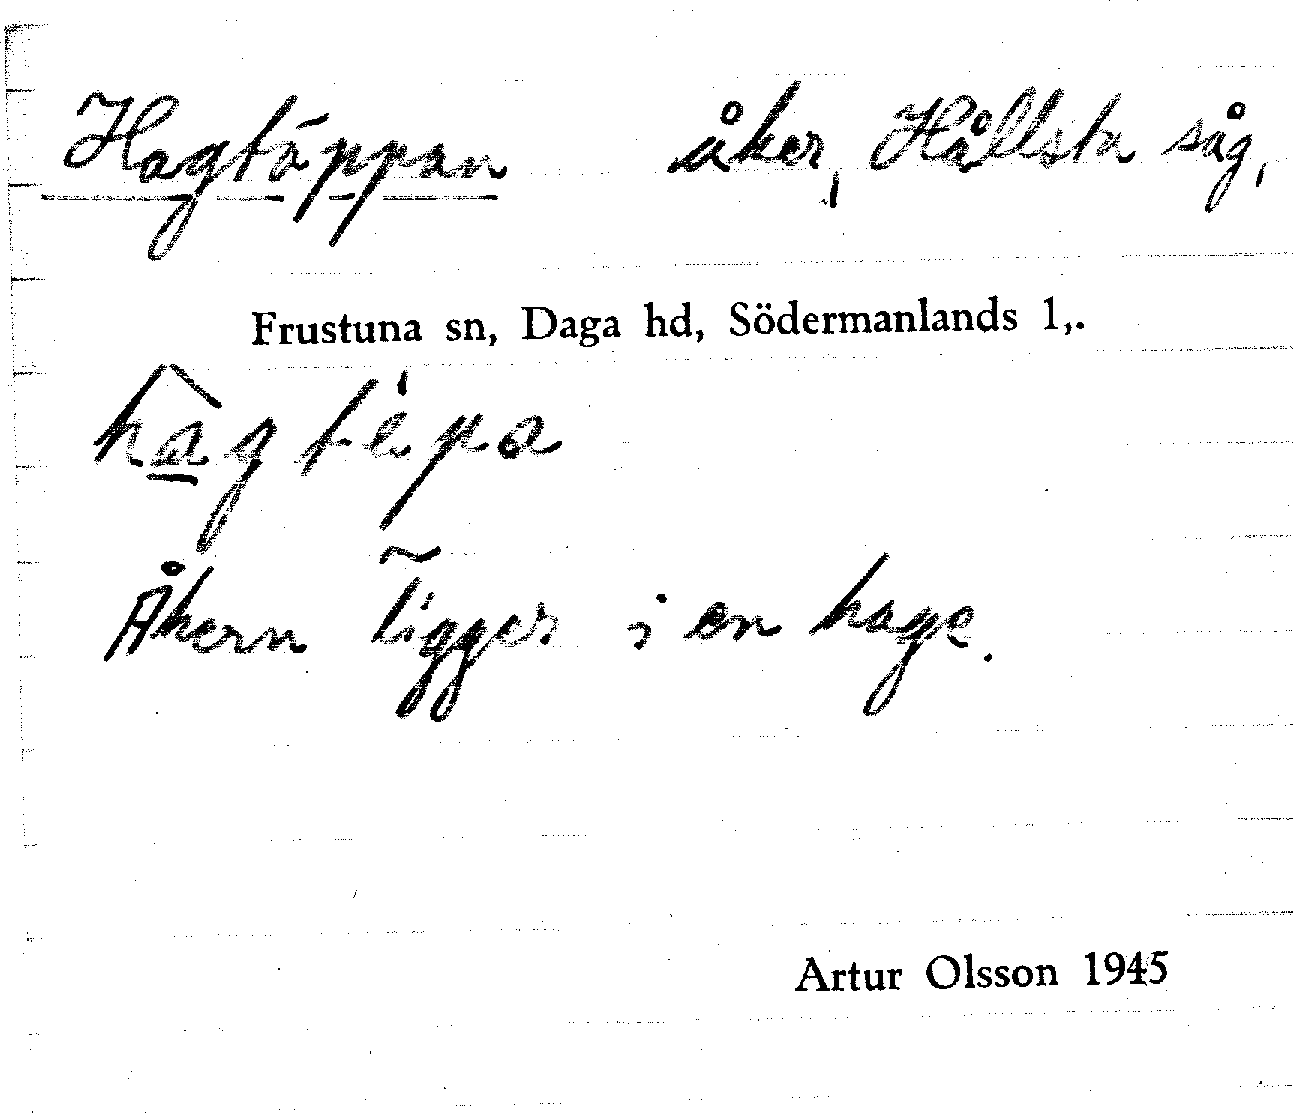 Hagtäppan åker, Hållsta såg,
Frustuna sn, Daga hd, Södermanlands l,.
hagtepa
Åkern ligger i en hage.
Artur Olsson 1945